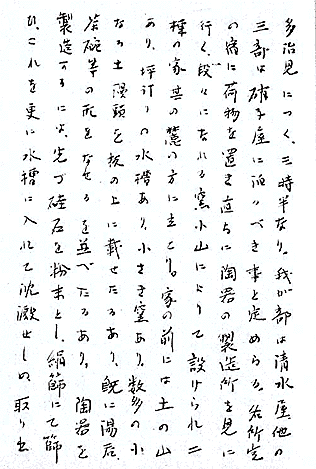 多治見につく、三時半なり。我が部は清水屋他の
三部は碓子屋に泊すべき事と定めらる。各所定
の宿に荷物を置き直ちに陶器の製造所を見に
行く、段々になれる窯小山によりて設けられ二
種の家其の麓の方に立てり。家の前には土の山
あり、坪計りの水槽あり、小さき窯あり、数多の小
なる土饅頭を板の上に載せたるあり、既に湯呑
茶碗等の形をなせるを並べたるあり。陶器を
製造するには、先づ硅石を粉末とし、絹篩にて篩
ひ、これを更に水槽に入れて沈澱せしめ、取り出